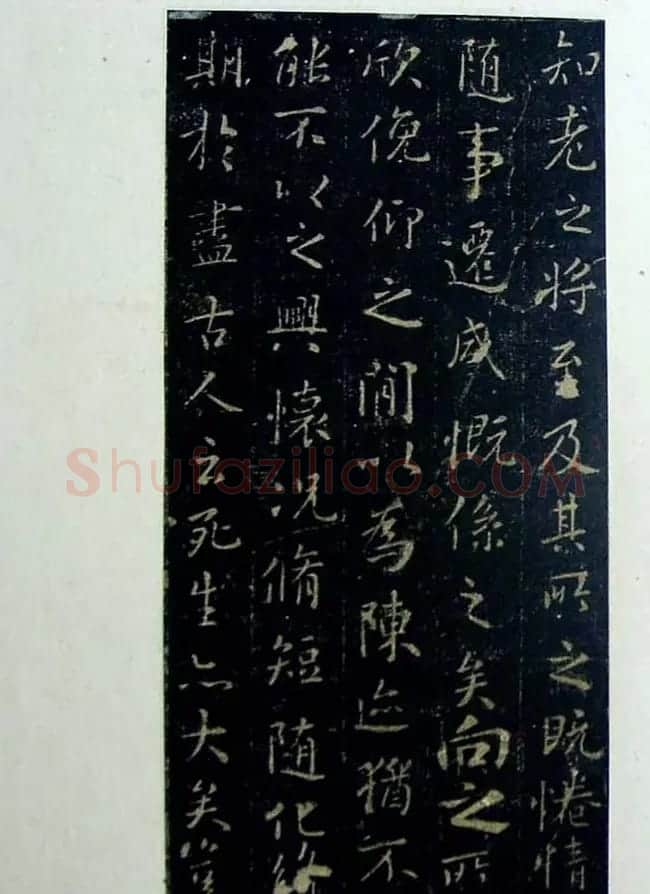 知老之將至及其所之既惓情
随事遷感慨係之矣向之所
欣俛仰之間以為陳迹猶不
能不以之興懷況脩短随化終
期於盡古人云死生亦大矣豈
Shufaziliao.COM